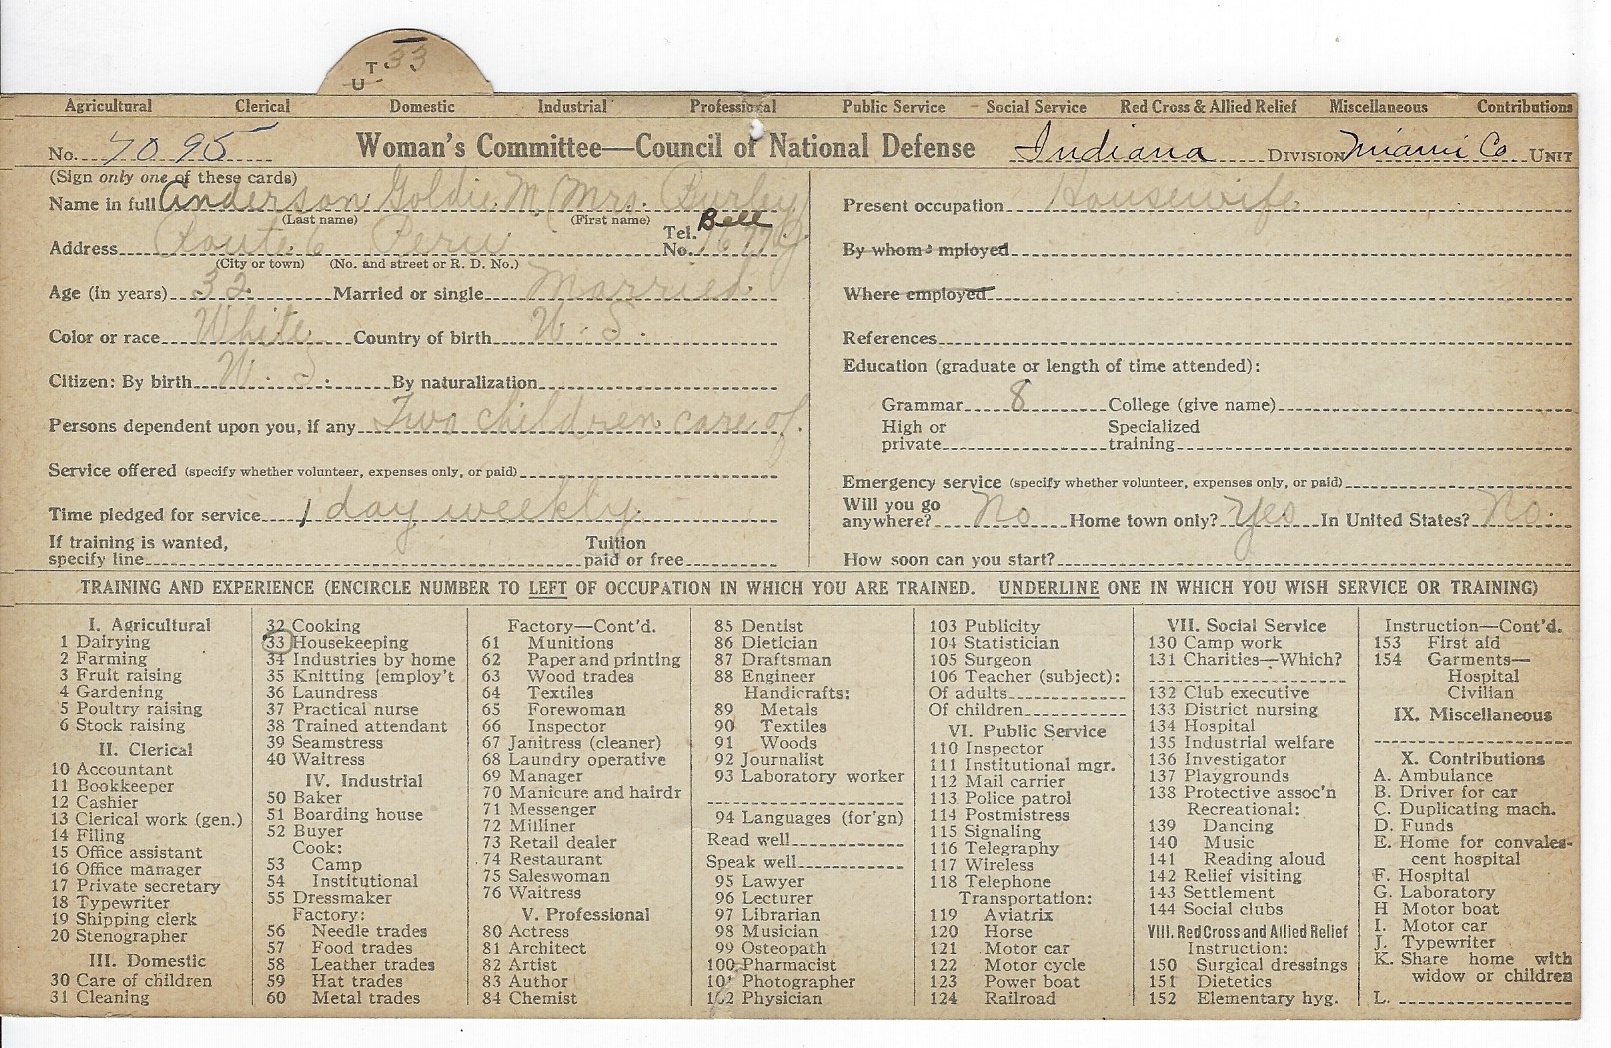 T 33
U
Agricultural Clerical Domestic Industrial Professional Public Service Social Service Red Cross & Allied Relief Miscellaneous Contributions
No. 7095 Woman's Committee—Council of National Defense Indiana DIVISION Miami Co UNIT
(Sign only one of these cards)
Name in full Anderson Goldie M. (Mrs. Burley)
(Last name) (First name)
Address Route 6 Peru Tel. No. Bell
(City or town) (No. and street or R. D. No.)
Age (in years) 32. Married or single Married.
Color or race White Country of birth U.S.
Citizen: By birth U.S. By naturalization
Persons dependent upon you, if any Two children care of.
Service offered (specify whether volunteer, expenses only, or paid)
Time pledged for service 1 day weekly.
If training is wanted, specify line Tuition paid or free
Present occupation Housewife.
By whom employed
Where employed
References
Education (graduate or length of time attended):
Grammar 8 College (give name)
High or private Specialized training
Emergency service (specify whether volunteer, expenses only, or paid)
Will you go anywhere? No Home town only? Yes In United States? No.
How soon can you start?
TRAINING AND EXPERIENCE (ENCIRCLE NUMBER TO LEFT OF OCCUPATION IN WHICH YOU ARE TRAINED. UNDERLINE ONE IN WHICH YOU WISH SERVICE OR TRAINING)
I. Agricultural
1 Dairying
2 Farming
3 Fruit raising
4 Gardening
5 Poultry raising
6 Stock raising
II. Clerical
10 Accountant
11 Bookkeeper
12 Cashier
13 Clerical work (gen.)
14 Filing
15 Office assistant
16 Office manager
17 Private secretary
18 Typewriter
19 Shipping clerk
20 Stenographer
III. Domestic
30 Care of children
31 Cleaning
32 Cooking
33 Housekeeping
34 Industries by home
35 Knitting [employ't
36 Laundress
37 Practical nurse
38 Trained attendant
39 Seamstress
40 Waitress
IV. Industrial
50 Baker
51 Boarding house
52 Buyer
Cook:
53 Camp
54 Institutional
55 Dressmaker
Factory:
56 Needle trades
57 Food trades
58 Leather trades
59 Hat trades
60 Metal trades
Factory—Cont'd.
61 Munitions
62 Paper and printing
63 Wood trades
64 Textiles
65 Forewoman
66 Inspector
67 Janitress (cleaner)
68 Laundry operative
69 Manager
70 Manicure and hairdr
71 Messenger
72 Milliner
73 Retail dealer
74 Restaurant
75 Saleswoman
76 Waitress
V. Professional
80 Actress
81 Architect
82 Artist
83 Author
84 Chemist
85 Dentist
86 Dietician
87 Draftsman
88 Engineer
Handicrafts:
89 Metals
90 Textiles
91 Woods
92 Journalist
93 Laboratory worker
94 Languages (for'gn)
Read well
Speak well
95 Lawyer
96 Lecturer
97 Librarian
98 Musician
99 Osteopath
100 Pharmacist
101 Photographer
102 Physician
103 Publicity
104 Statistician
105 Surgeon
106 Teacher (subject):
Of adults
Of children
VI. Public Service
110 Inspector
111 Institutional mgr.
112 Mail carrier
113 Police patrol
114 Postmistress
115 Signaling
116 Telegraphy
117 Wireless
118 Telephone
Transportation:
119 Aviatrix
120 Horse
121 Motor car
122 Motor cycle
123 Power boat
124 Railroad
VII. Social Service
130 Camp work
131 Charities—Which?
132 Club executive
133 District nursing
134 Hospital
135 Industrial welfare
136 Investigator
137 Playgrounds
138 Protective assoc'n
Recreational:
139 Dancing
140 Music
141 Reading aloud
142 Relief visiting
143 Settlement
144 Social clubs
VIII. Red Cross and Allied Relief
Instruction:
150 Surgical dressings
151 Dietetics
152 Elementary hyg.
Instruction—Cont'd.
153 First aid
154 Garments—
Hospital
Civilian
IX. Miscellaneous
X. Contributions
A. Ambulance
B. Driver for car
C. Duplicating mach.
D. Funds
E. Home for convales-
cent hospital
F. Hospital
G. Laboratory
H Motor boat
I. Motor car
J. Typewriter
K. Share home with
widow or children
L.